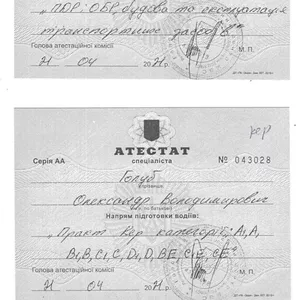 „ПДР; ОБР; будова та експлуатація
транспортних засобів"
Голова атестаційної комісії
21 04 М. П.
АТЕСТАТ
Серія АА спеціаліста № 043028
Голуб
(прізвище)
Олександр Володимирович
(ім'я, по батькові)
Напрям підготовки водіїв:
„Практ. кер. категорії: А1, А,
В1, В, С1, С, D1, D, ВЕ, С1Е, СЕ"
Голова атестаційної комісії М. П.
21 04